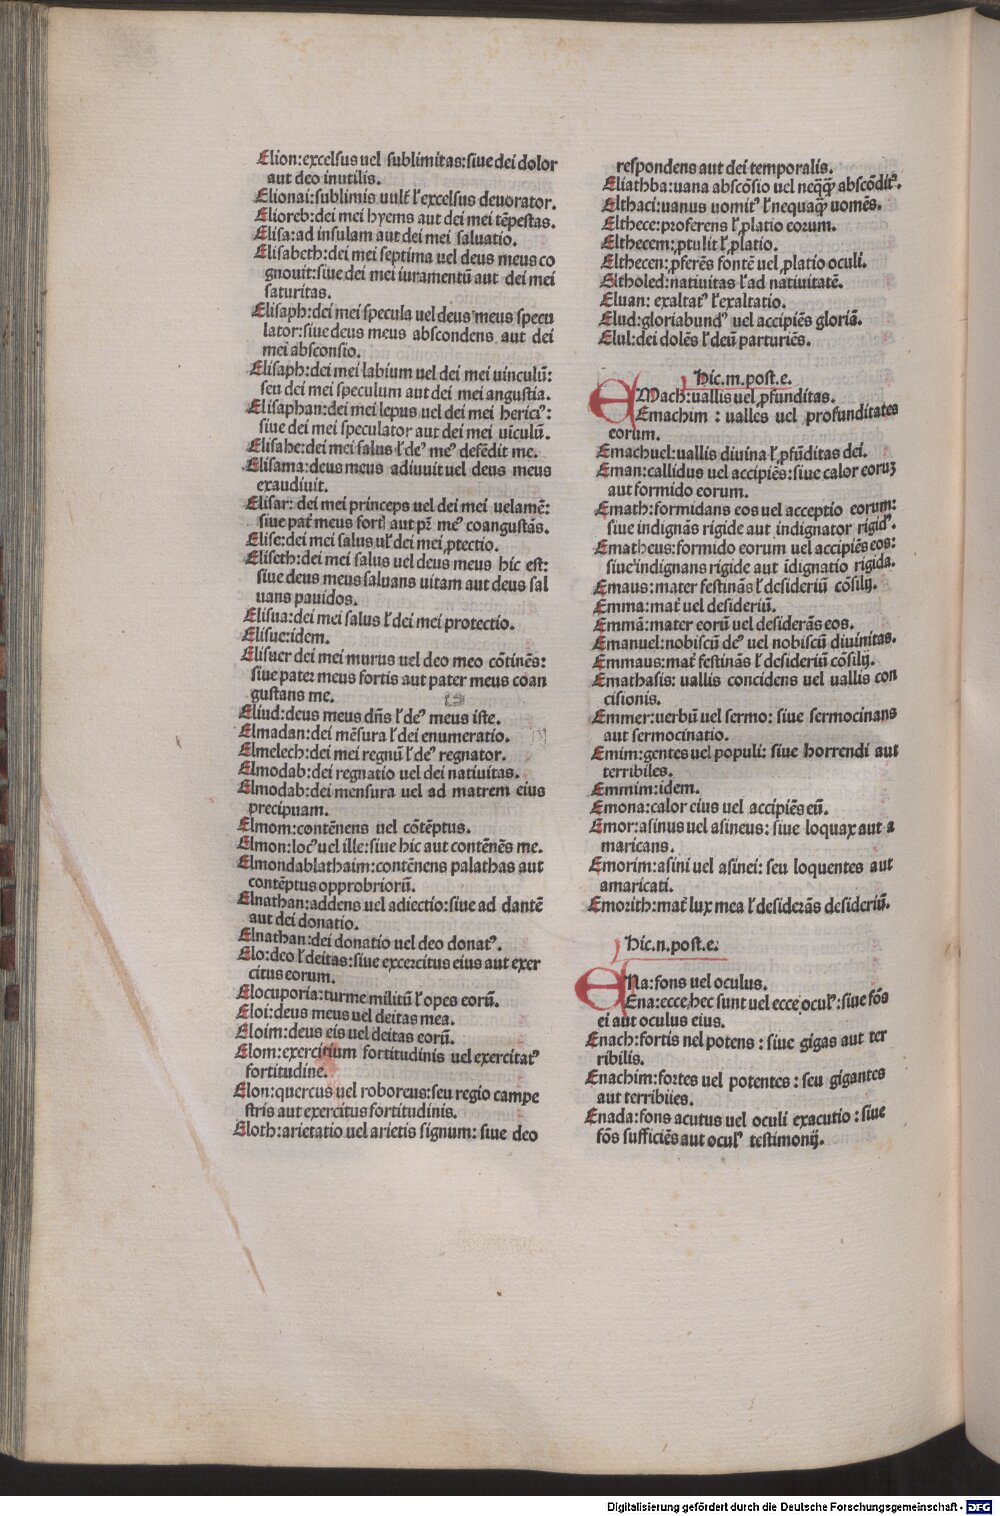 Elion:excelsus uel sublimitas:siue dei dolor
aut deo inutilis.
Elionai:sublimis uult͛ ł excelsus deuorator.
Elioreb:dei mei hyems aut dei mei tēpestas.
Elisa:ad insulam aut dei mei saluatio.
Elisabeth:dei mei septima uel deus meus co
gnouit:siue dei mei iuramentū aut dei mei
saturitas.
Elisaph:dei mei specula uel deus meus specu
lator:siue deus meus abscondens aut dei
mei absconsio.
Elisaph:dei mei labium uel dei mei uinculū:
seu dei mei speculum aut dei mei angustia.
Elisaphan:dei mei lepus uel dei mei hericiꝰ:
siue dei mei speculator aut dei mei uiculū.
Elisahe:dei mei salus ł deꝰ meꝰ defēdit me.
Elisama:deus meus adiuuit uel deus meus
exaudiuit.
Elisar: dei mei princeps uel dei mei uelamē:
siue pat͛ meus fort aut pr̄ meꝰ coangustās.
Elise:dei mei salus uł dei mei ꝓtectio.
Eliseth:dei mei salus uel deus meus hic est:
siue deus meus saluans uitam aut deus sal
uans pauidos.
Elisua:dei mei salus ł dei mei protectio.
Elisue:idem.
Elisuer dei mei murus uel deo meo cōtinēs:
siue pater meus fortis aut pater meus coan
gustans me.
Eliud:deus meus dn̄s ł deꝰ meus iste.
Elmadan:dei mēsura ł dei enumeratio.
Elmelech:dei mei regnū ł deꝰ regnator.
Elmodab:dei regnatio uel dei natiuitas.
Elmodab:dei mensura uel ad matrem eius
precipuam.
Elmom:contēnens uel cōtēptus.
Elmon:locꝰ uel ille:siue hic aut contēnēs me.
Elmondablathaim:contēnens palathas aut
contēptus opprobriorū.
Elnathan:addens uel adiectio:siue ad dantē
aut dei donatio.
Elnathan:dei donatio uel deo donatꝰ.
Elo:deo ł deitas:siue excercitus eius aut exer
citus eorum.
Elocuporia:turme militū ł opes eorū.
Eloi:deus meus uel deitas mea.
Eloim:deus eis uel deitas eorū.
Elom:exercitium fortitudinis uel exercitatꝰ
fortitudine.
Elon:quercus uel roboreus:seu regio campe
stris aut exercitus fortitudinis.
Eloth:arietatio uel arietis signum: siue deo
respondens aut dei temporalis.
Eliathba:uana abscōsio uel neqꝗ̄ abscōditꝰ.
Elthaci:uanus uomitꝰ ł nequaꝗ̄ uomēs.
Elthece:proferens ł ꝓlatio eorum.
Elthecem:ꝓtulit ł ꝓlatio.
Elthecen:ꝓferēs fontē uel ꝓlatio oculi.
Eltholed:natiuitas ł ad natiuitatē.
Eluan: exaltatꝰ ł exaltatio.
Elud:gloriabundꝰ uel accipiēs gloriā.
Elul:dei dolēs ł deū parturiēs.
Hic.m.post.e.
EMach:uallis uel ꝓfunditas.
Emachim : ualles uel profunditates
eorum.
Emachuel:uallis diuina ł ꝓfūditas dei.
Eman:callidus uel accipiēs:siue calor eoruꝫ
aut formido eorum.
Emath:formidans eos uel acceptio eorum:
siue indignās rigide aut indignator rigidꝰ.
Ematheus:formido eorum uel accipiēs eos:
siue indignans rigide aut īdignatio rigida.
Emaus:mater festinās ł desideriū cōsilij.
Emma:mat͛ uel desideriū.
Emmā:mater eorū uel desiderās eos.
Emanuel:nobiscū deꝰ uel nobiscū diuinitas.
Emmaus:mat͛ festinās ł desideriū cōsilij.
Emathasis: uallis concidens uel uallis con
cisionis.
Emmer:uerbū uel sermo: siue sermocinans
aut sermocinatio.
Emim:gentes uel populi: siue horrendi aut
terribiles.
Emmim:idem.
Emona:calor eius uel accipiēs eū.
Emor:asinus uel asineus: siue loquax aut a
maricans.
Emorim:asini uel asinei: seu loquentes aut
amaricati.
Emorith:mat͛ lux mea ł desiderās desideriū.
Hic.n.post.e.
ENa:fons uel oculus.
Ena:ecce hec sunt uel ecce oculꝰ:siue fōs
ei aut oculus eius.
Enach:fortis nel potens : siue gigas aut ter
ribilis.
Enachim:fortes uel potentes : seu gigantes
aut terribiies.
Enada:fons acutus uel oculi exacutio : siue
fōs sufficiēs aut oculꝰ testimonij.
Digitalisierung gefördert durch die Deutsche Forschungsgemeinschaft - DFG